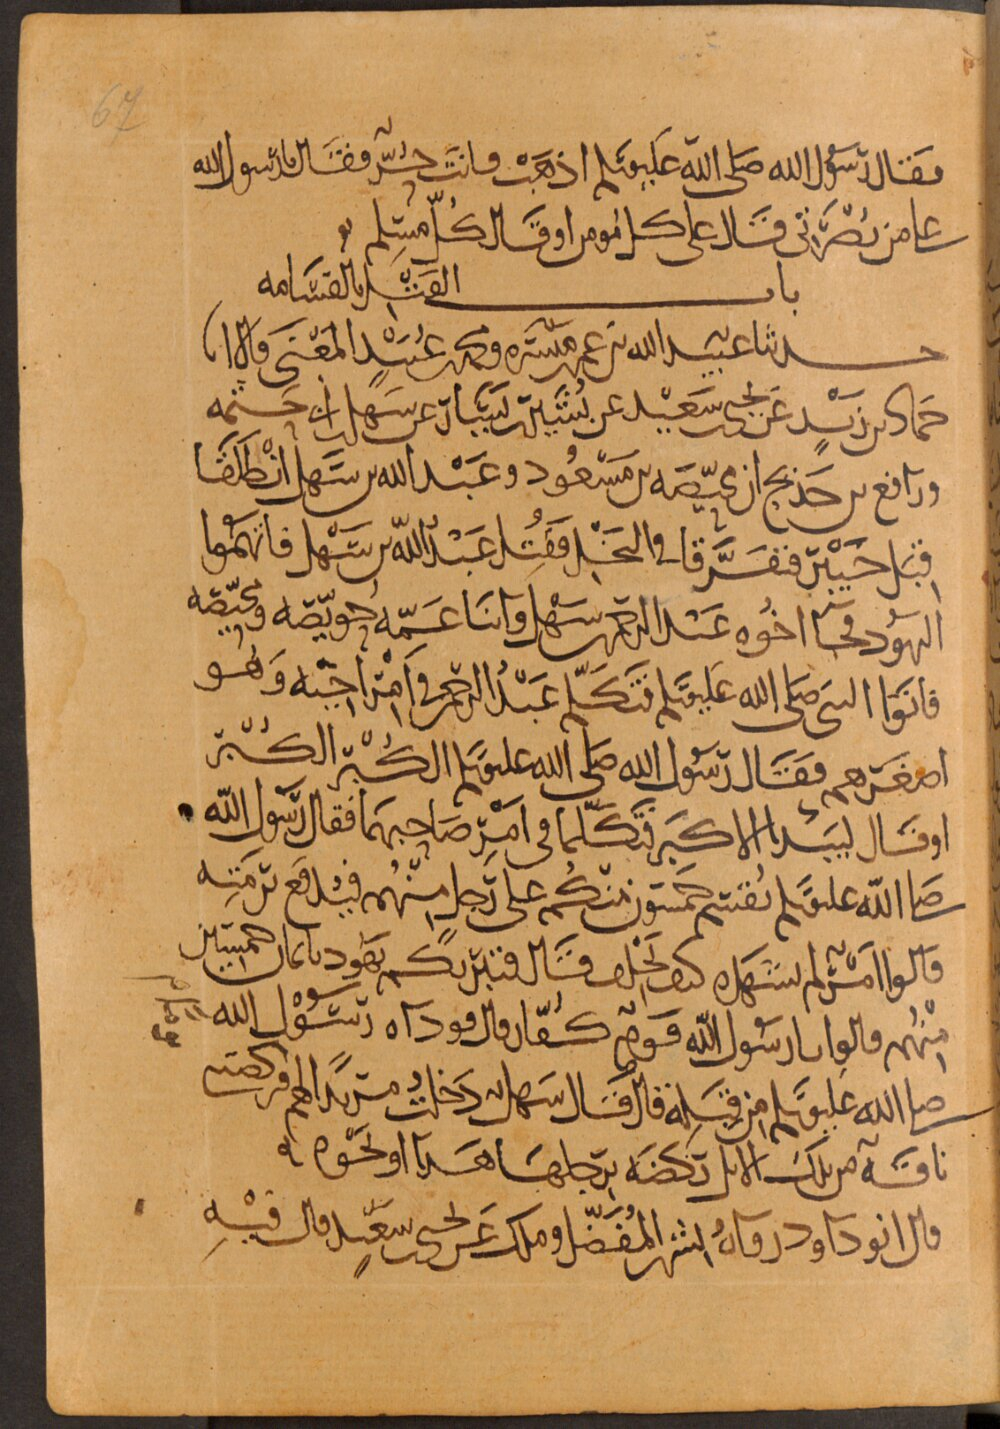 67
فقال رسول الله صلى الله عليه وسلم اذهب فانت حر فقال يا رسول الله
على من نصرتي قال على كل مومن او قال كل مسلم
باب القتل بالقسامه
حدثنا عبيد الله بن عمر بن ميسره ومحمد بن عبيد المعنى قالا انا
حماد بن زيد عن يحيى بن سعيد عن بشير بن يسار عن سهل بن ابي حثمه
ورافع بن خديج ان محيصه بن مسعود وعبد الله بن سهل انطلقا
قبل خيبر فتفرقا في النخل فقتل عبد الله بن سهل فاتهموا
اليهود فجا اخوه عبد الرحمن بن سهل وابنا عمه حويصه ومحيصه
فاتوا النبي صلى الله عليه وسلم فتكلم عبد الرحمن في امر اخيه وهو
اصغرهم فقال رسول الله صلى الله عليه وسلم الكبر الكبر
او قال ليبدا الاكبر فتكلما في امر صاحبهما فقال رسول الله
صلى الله عليه وسلم يقسم خمسون منكم على رجل منهم فيدفع برمته
قالوا امر لم نشهده كيف نحلف قال فتبريكم يهود بايمان خمسين
منهم قالوا يا رسول الله قوم كفار قال فوداه رسول الله
صلى الله عليه وسلم من قبله قال قال سهل دخلت مربدا لهم فركضتني
ناقة من تلك الابل ركضه برجلها هذا او نحوه
قال ابو داود رواه بشر بن المفضل وملك عن يحيى بن سعيد قال فيه